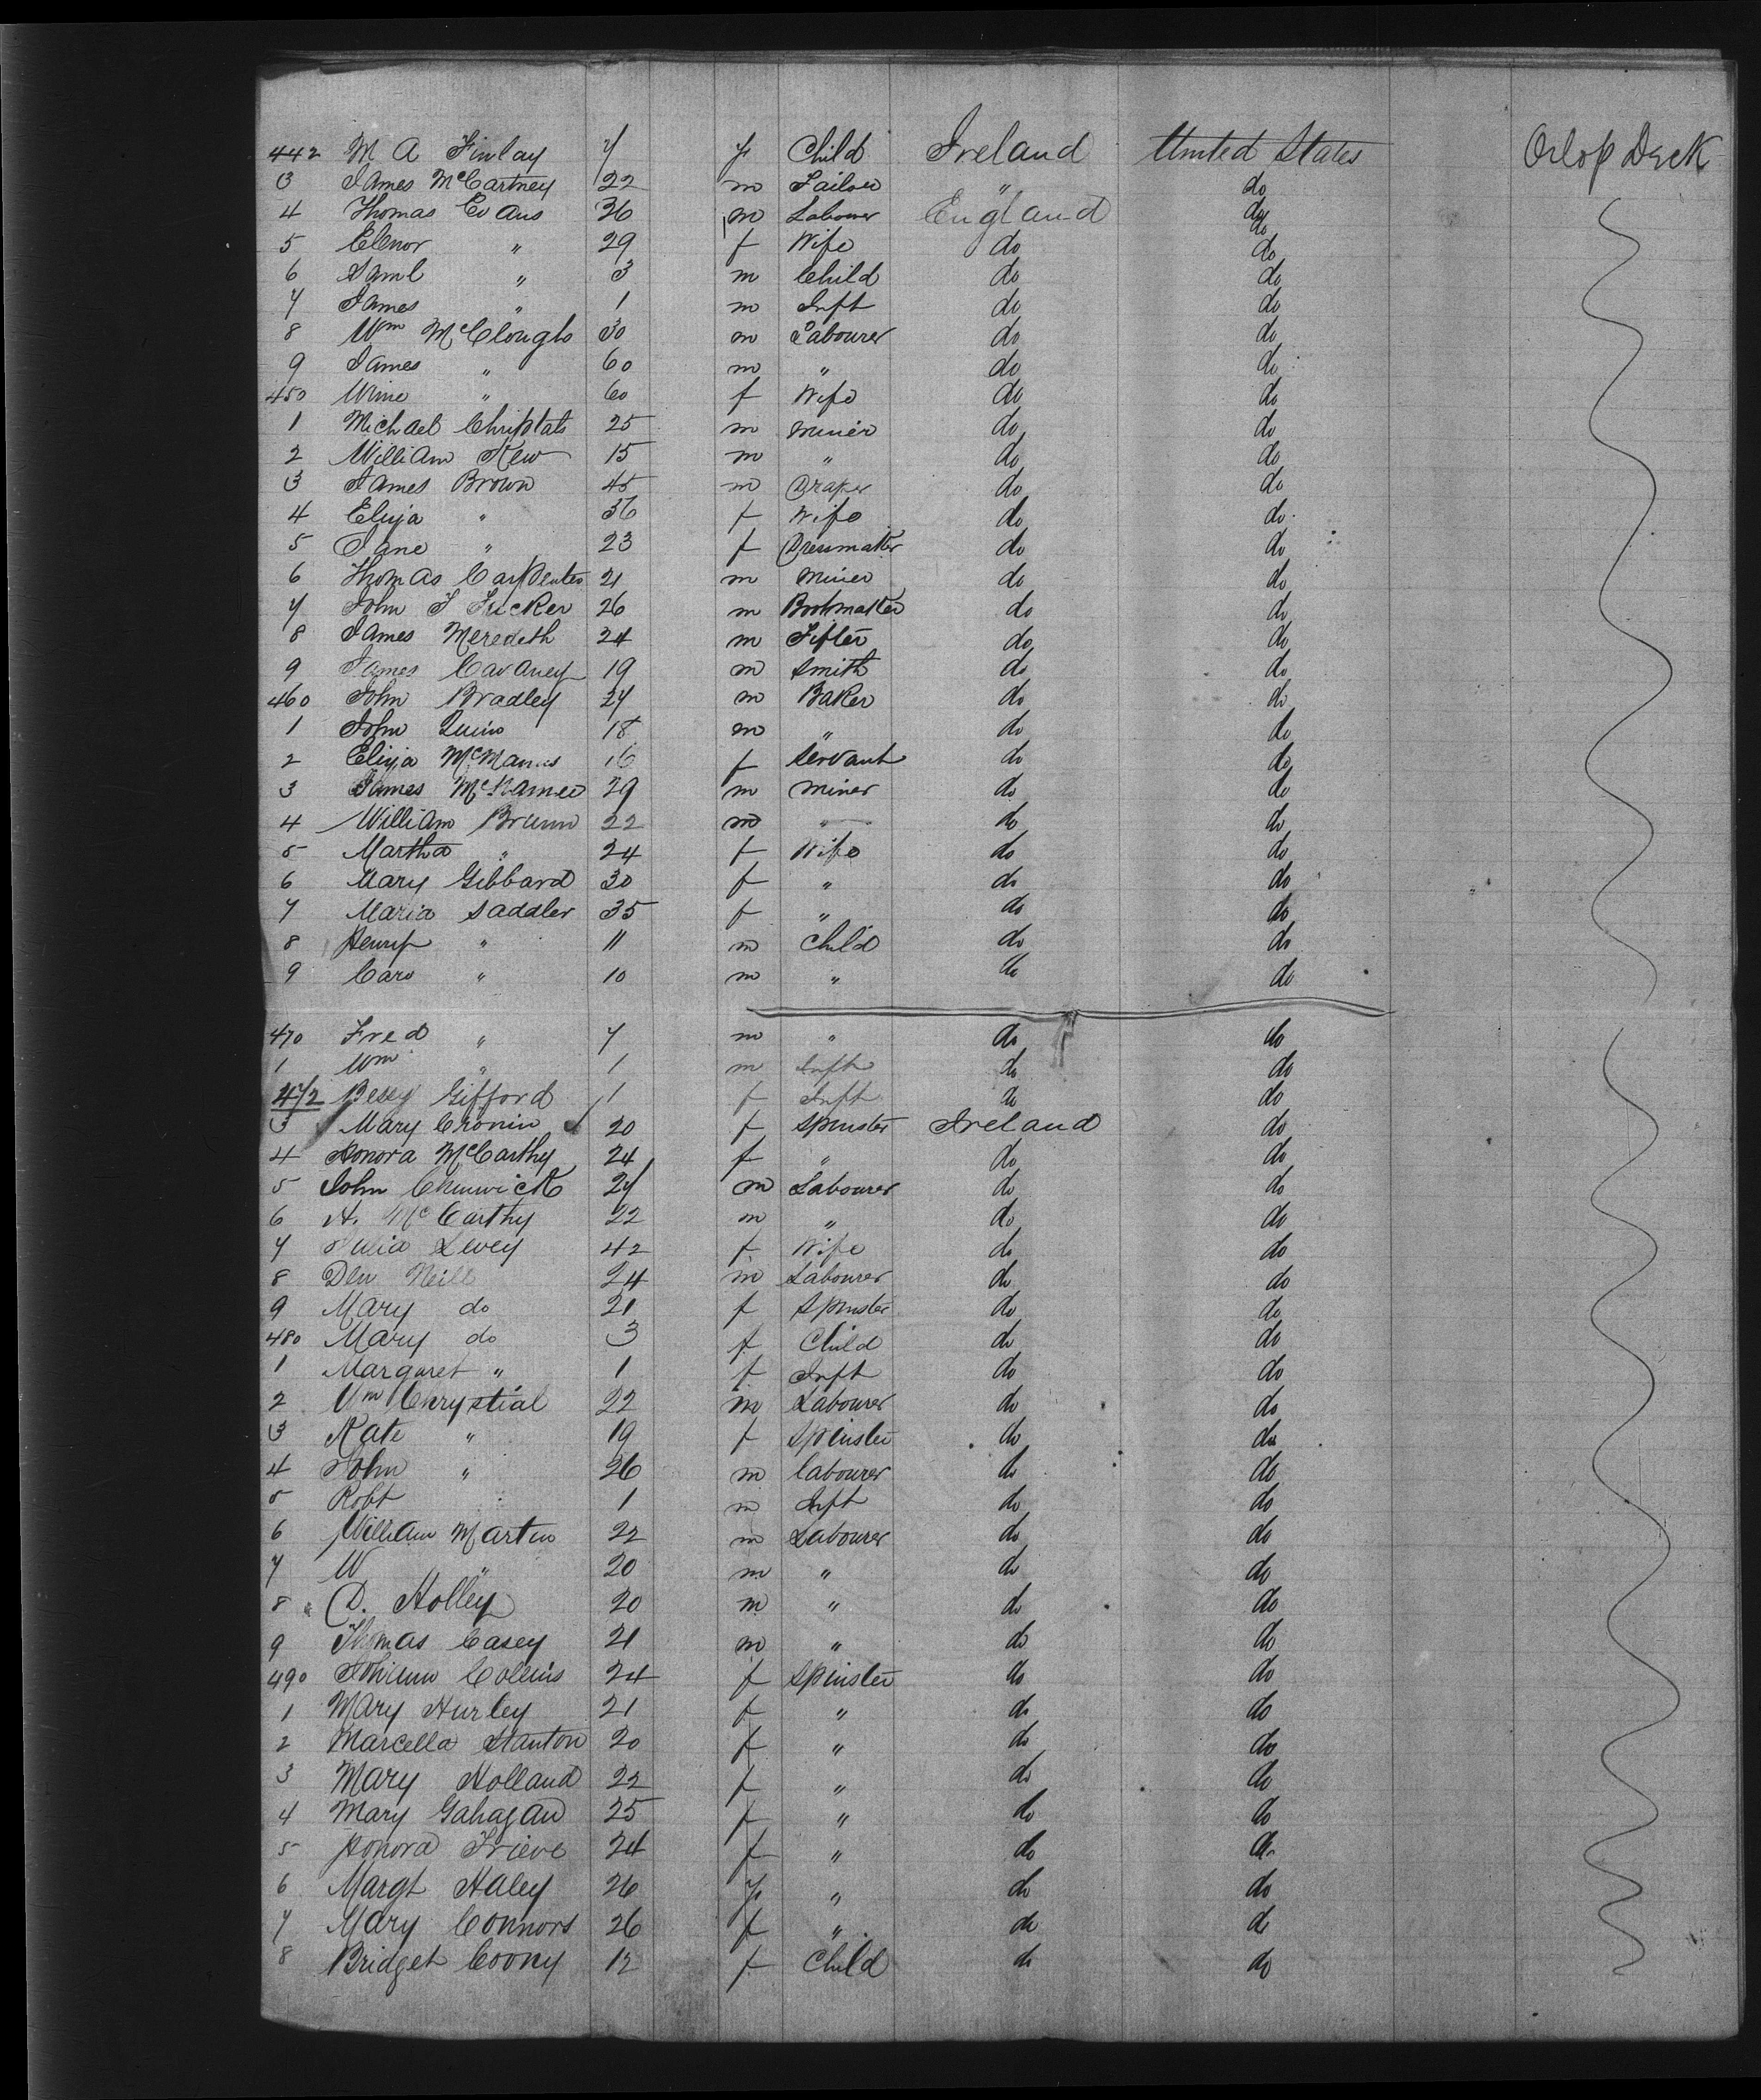 442 M A Finlay 7 f Child Ireland United States Orlop Deck
3 James McCartney 22 m Tailor " do
4 Thomas Evans 36 m Labourer England do
5 Elenor " 29 f Wife do do
6 Saml " 3 m Child do do
7 James " 1 m Inft do do
8 Wm McClough 30 m Labourer do do
9 James " 60 m " do do
450 " 60 f Wife do do
1 Michael 25 m Miner do do
2 William Kew 15 m " do do
3 James Brown 45 m Draper do do
4 Eliza " 36 f Wife do do
5 Jane " 23 f Dressmaker do do
6 Thomas Carpenter 21 m Miner do do
7 John T Tucker 26 m Bootmaker do do
8 James Meredeth 24 m Fitter do do
9 James Cavaney 19 m Smith do do
460 John Bradley 27 m Baker do do
1 John Quinn 18 m " do do
2 Eliza McManus 16 f Servant do do
3 James McNamee 29 m Miner do do
4 William Brunn 22 m " do do
5 Martha " 24 f Wife do do
6 Mary Gibbard 30 f " do do
7 Maria Saddler 35 f " do do
8 Henry " 11 m Child do do
9 Caro " 10 m " do do
470 Fred " 7 m " do do
1 Wm " 1 m Inft do do
472 Bessy Gifford 1 f Inft do do
3 Mary Cronin 20 f Spinster Ireland do
4 Honora McCarthy 24 f " do do
5 John 27 m Labourer do do
6 A. McCarthy 22 m " do do
7 Julia Levey 42 f Wife do do
8 Den Neill 24 m Labourer do do
9 Mary do 21 f Spinster do do
480 Mary do 3 f Child do do
1 Margaret " 1 f Inft do do
2 Wm Chrystial 22 m Labourer do do
3 Kate " 19 f Spinster do do
4 John " 26 m Labourer do do
5 Robt " 1 m Inft do do
6 William Martin 22 m Labourer do do
7 W " 20 m " do do
8 D. Holley 20 m " do do
9 Thomas Casey 21 m " do do
490 Collins 24 f Spinster do do
1 Mary Hurley 21 f " do do
2 Marcella Stanton 20 f " do do
3 Mary Holland 22 f " do do
4 Mary Gahagan 25 f " do do
5 Honora Frieve 24 f " do do
6 Margt Haley 26 f " do do
7 Mary Connors 26 f " do do
8 Bridget Coony 12 f Child do do